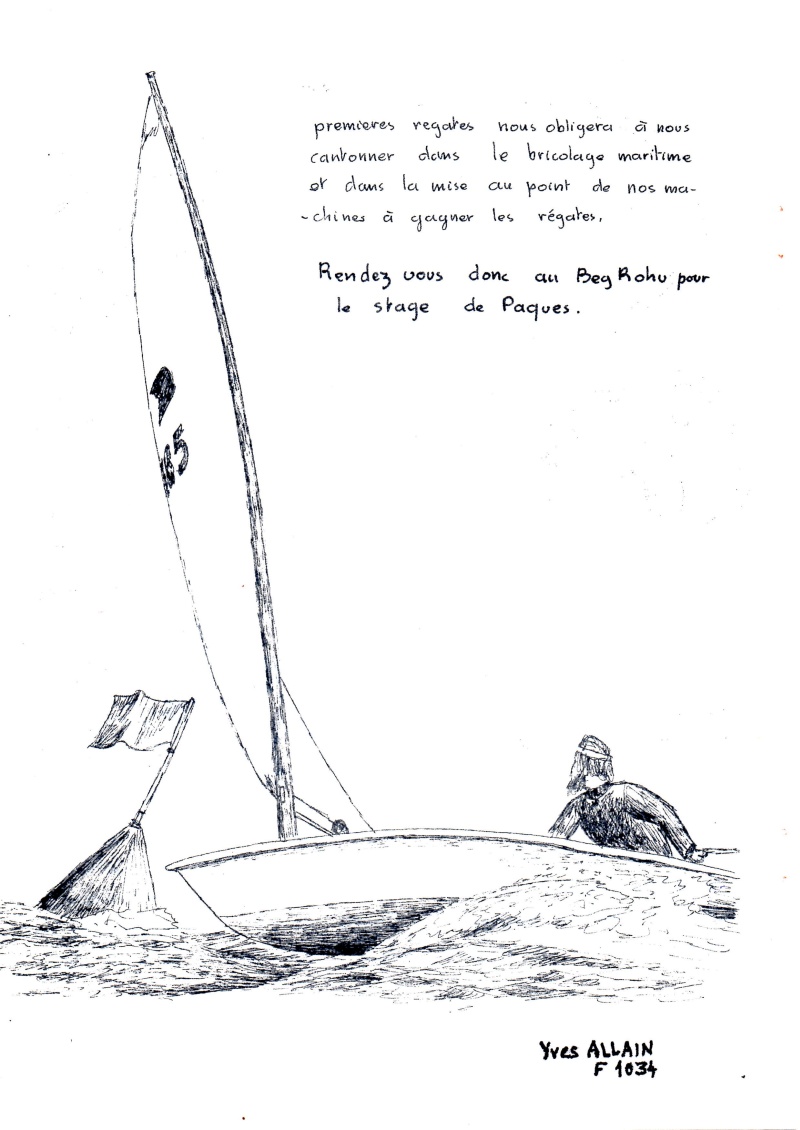 premieres regates nous obligera à nous
cantonner dans le bricolage maritime
et dans la mise au point de nos ma-
-chines à gagner les régates.
Rendez vous donc au Beg Rohu pour
le stage de Paques.
65
Yves ALLAIN
F 1034